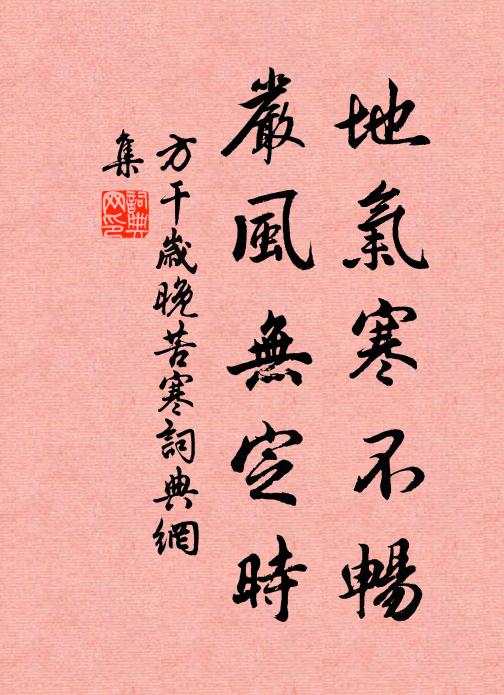 地氣寒不暢
嚴風無定時
方干歲晚苦寒詞典網
集
詞典
网印